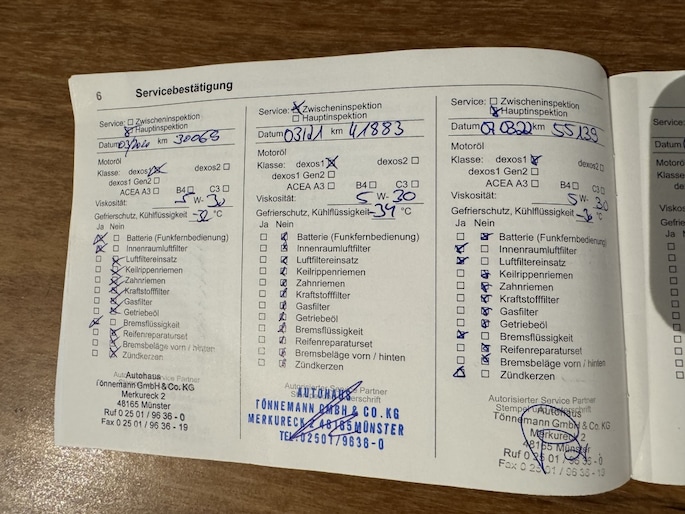 6 Servicebestätigung
Service: Zwischeninspektion
Hauptinspektion
Datum 03/20 km 30065
Motoröl
Klasse: dexos1 dexos2
dexos1 Gen2
ACEA A3 B4 C3
Viskosität: 5 W- 30
Gefrierschutz, Kühlflüssigkeit -32 °C
Ja Nein
Batterie (Funkfernbedienung)
Innenraumluftfilter
Luftfiltereinsatz
Keilrippenriemen
Zahnriemen
Kraftstofffilter
Gasfilter
Getriebeöl
Bremsflüssigkeit
Reifenreparaturset
Bremsbeläge vorn / hinten
Zündkerzen
Autorisierter Service Partner
Autohaus
Tönnemann GmbH & Co. KG
Merkureck 2
48165 Münster
Ruf 0 25 01 / 96 36 - 0
Fax 0 25 01 / 96 36 - 19
Service: Zwischeninspektion
Hauptinspektion
Datum 03/21 km 41883
Motoröl
Klasse: dexos1 dexos2
dexos1 Gen2
ACEA A3 B4 C3
Viskosität: 5 W- 30
Gefrierschutz, Kühlflüssigkeit -34 °C
Ja Nein
Batterie (Funkfernbedienung)
Innenraumluftfilter
Luftfiltereinsatz
Keilrippenriemen
Zahnriemen
Kraftstofffilter
Gasfilter
Getriebeöl
Bremsflüssigkeit
Reifenreparaturset
Bremsbeläge vorn / hinten
Zündkerzen
Autorisierter Service Partner
AUTOHAUS
TÖNNEMANN GMBH & CO. KG
MERKURECK 2 48165 MÜNSTER
TEL. 02501/9636-0
Service: Zwischeninspektion
Hauptinspektion
Datum 07.0322 km 55139
Motoröl
Klasse: dexos1 dexos2
dexos1 Gen2
ACEA A3 B4 C3
Viskosität: 5 W- 30
Gefrierschutz, Kühlflüssigkeit °C
Ja Nein
Batterie (Funkfernbedienung)
Innenraumluftfilter
Luftfiltereinsatz
Keilrippenriemen
Zahnriemen
Kraftstofffilter
Gasfilter
Getriebeöl
Bremsflüssigkeit
Reifenreparaturset
Bremsbeläge vorn / hinten
Zündkerzen
Autorisierter Service Partner
Stempel und Unterschrift
Autohaus
Tönnemann GmbH & Co. KG
Merkureck 2
48165 Münster
Ruf 0 25 01 / 96 36 - 0
Fax 0 25 01 / 96 36 - 19